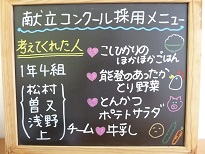 献立コンクール採用メニュー
考えてくれた人
1年4組
松村
曽又
浅野
上
チーム
こしひかりの
ほかほかごはん
能登のあったか
とり野菜
とんかつ
ポテトサラダ
牛乳